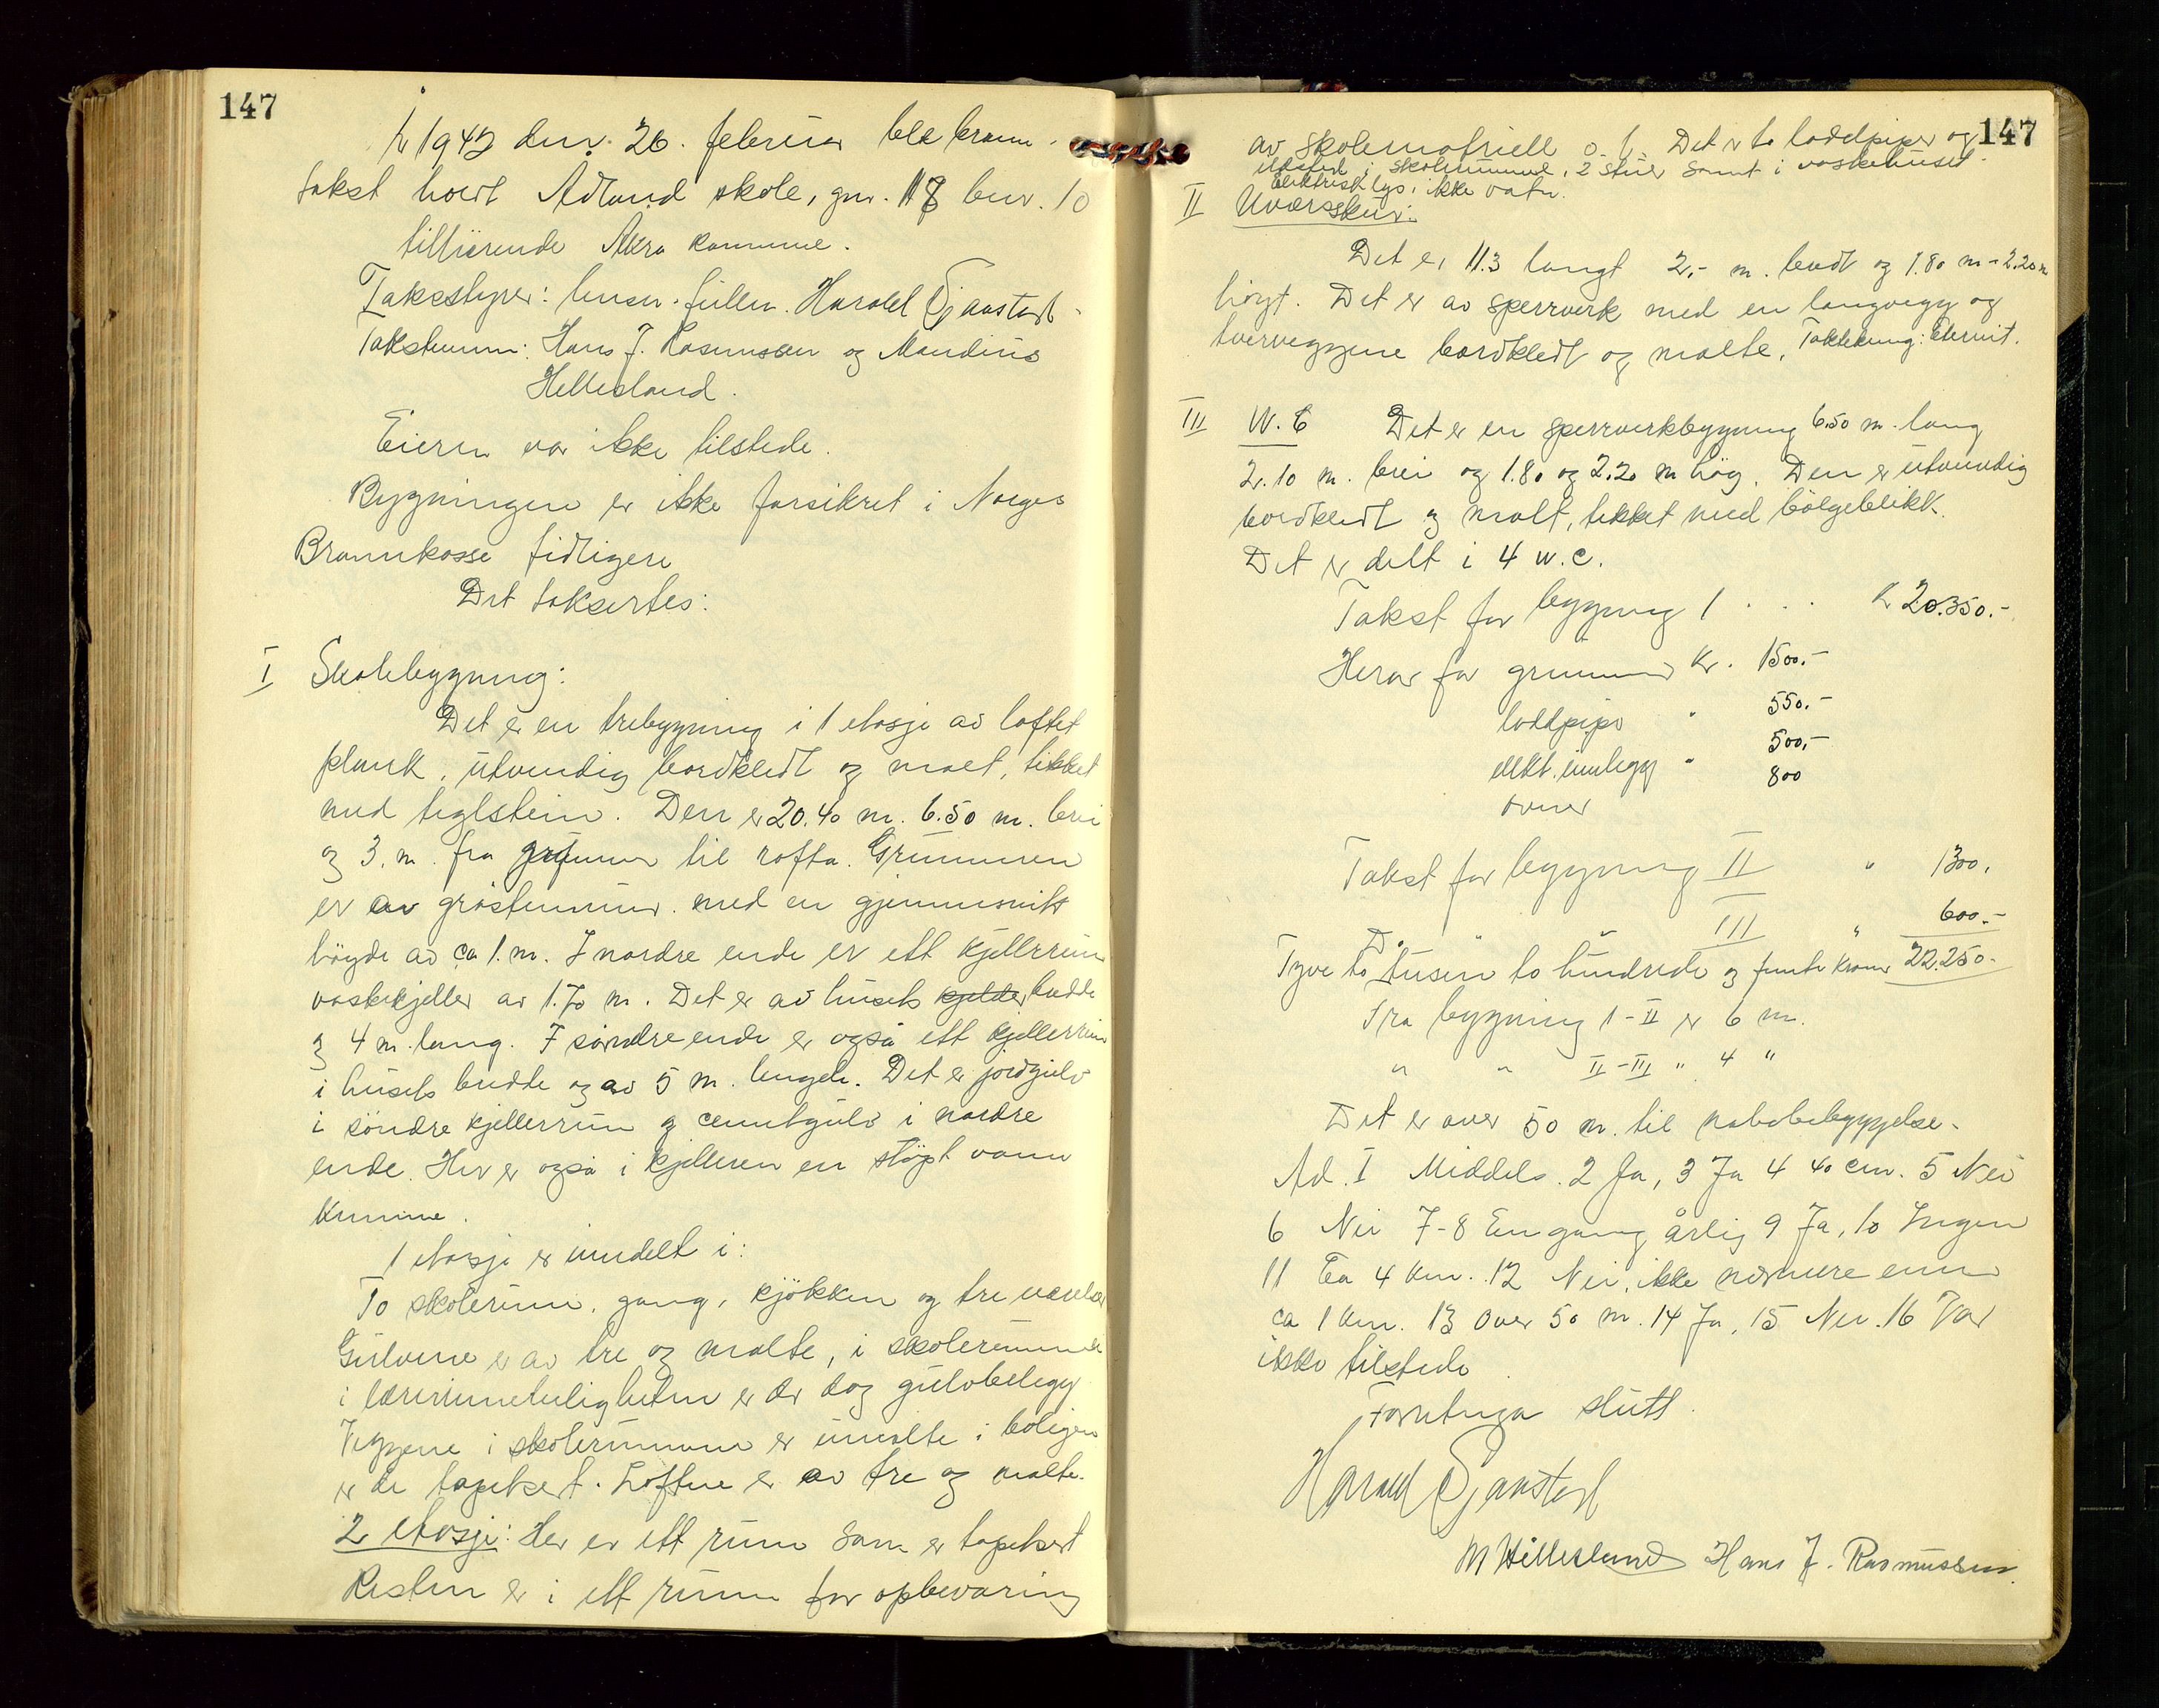 147
År 1942 den 26. februar ble brann-
takst holdt Adland skole, gnr. 118 bnr. 10
tilhörende Åkra komune.
Takstsyrer: lensm. fullm. Harald Gjanstad.
Takstmenn: Hans J. Rasmussen og Mandius
Hellesland.
Eieren var ikke tilstede.
Bygningene er ikke forsikret i Norges
Brannkasse tidligere
Det taksertes:
I Skolebygning:
Det er en trebygning i 1 etasje av laftet
plank, utvendig bordkledt og malt, tekket
med teglstein. Den er 20.40 m. 6.50 m. brei
og 3. m. fra grunnen til rafta. Grunnmuren
er av gråsteinmur. med en gjennomsnitt
höyde av ca 1. m. I nordre ende er ett kjellerrum
vaskekjeller av 1.70 m. Det er av husets kjelder bredde
og 4 m. lang. I söndre ende er også ett kjellerrum
i husets bredde og av 5 m. lengde. Det er jordgulv
i söndre kjellerrum og cementgulv i nordre
ende. Her er også i kjelleren en stöpt vann
kumme.
1 etasje er inndelt i:
To skolerum, gang, kjökken og tre værelser
Gulvene er av tre og malte, i skolerummene
i lærerinneleiligheten er der dog gulvbelegg
Veggene i skolerummene er umalte i boligen
er de tapetsert. Loftene er av tre og malte.
2 etasje: Her er ett rum som er tapetsert
Resten er i ett rum for opbevaring
147
av skolematriell o. l. Det er to loddpiper og
ildsted i skolerummene, 2 stuer samt i vaskehuset.
Elektrisk lys, ikke vatn.
II Uværsskur:
Det er 11.3 langt 2,- m. bredt og 1.80 m - 2.20 m
höyt. Det er av sperrverk med en langvegg og
tverveggene bordkledt og malte. Taktekning: Eternit.
III W. C Det er en sperrverkbygning 6.50 m. lang
2.10 m. brei og 1.80 og 2.20 m hög. Den er utvendig
bordkledt og malt, tekket med bölgeblikk.
Det er delt i 4 w.c.
Takst for bygning 1 . . . Kr 20.350.-
Herav for grunnmur Kr. 1500.-
loddpipe " 550.-
elekt. innlegg " 500,-
ovner 800
Takst for bygning II " 1300.
Do " " III " 600.-
Tyve to tusen to hundrede og femti kroner 22.250.-
Fra bygning 1 - II er 6 m.
" " II - III " 4 "
Det er over 50 m. til nabobebyggelse.
Ad. I Middels. 2 Ja, 3 Ja 4 40 cm. 5 Nei
6 Nei 7-8 En gang årlig 9 Ja, 10 Ingen
11 Ca 4 km. 12 Nei, ikke nærmere enn
ca 1 km. 13 Over 50 m. 14 Ja, 15 Nei. 16 Var
ikke tilstede.
Forretninga slutt.
Harald Gjanstad
M Hellesland Hans J. Rasmussen